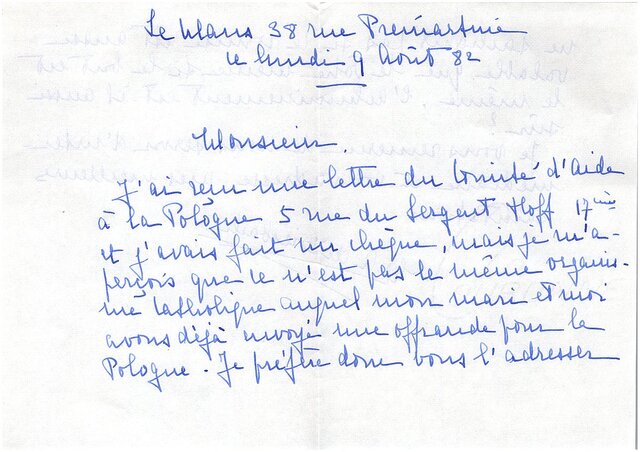 Le Mans 38 rue Prémartine
le lundi 9 Août 82
Monsieur,
J'ai reçu une lettre du Comité d'Aide
à la Pologne 5 rue du Sergent Hoff 17ème
et j'avais fait un chèque, mais je m'a-
perçois que ce n'est pas le même organis-
me catholique auquel mon mari et moi
avons déjà envoyé une offrande pour la
Pologne. Je préfère donc vous l'adresser